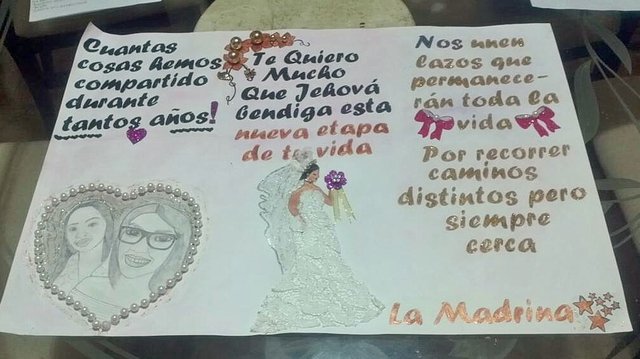 Cuantas
cosas hemos
compartido
durante
tantos años!
Te Quiero
Mucho
Que Jehová
bendiga esta
nueva etapa
de tu vida
Nos unen
lazos que
permanece-
rán toda la
vida
Por recorrer
caminos
distintos pero
siempre
cerca
La Madrina